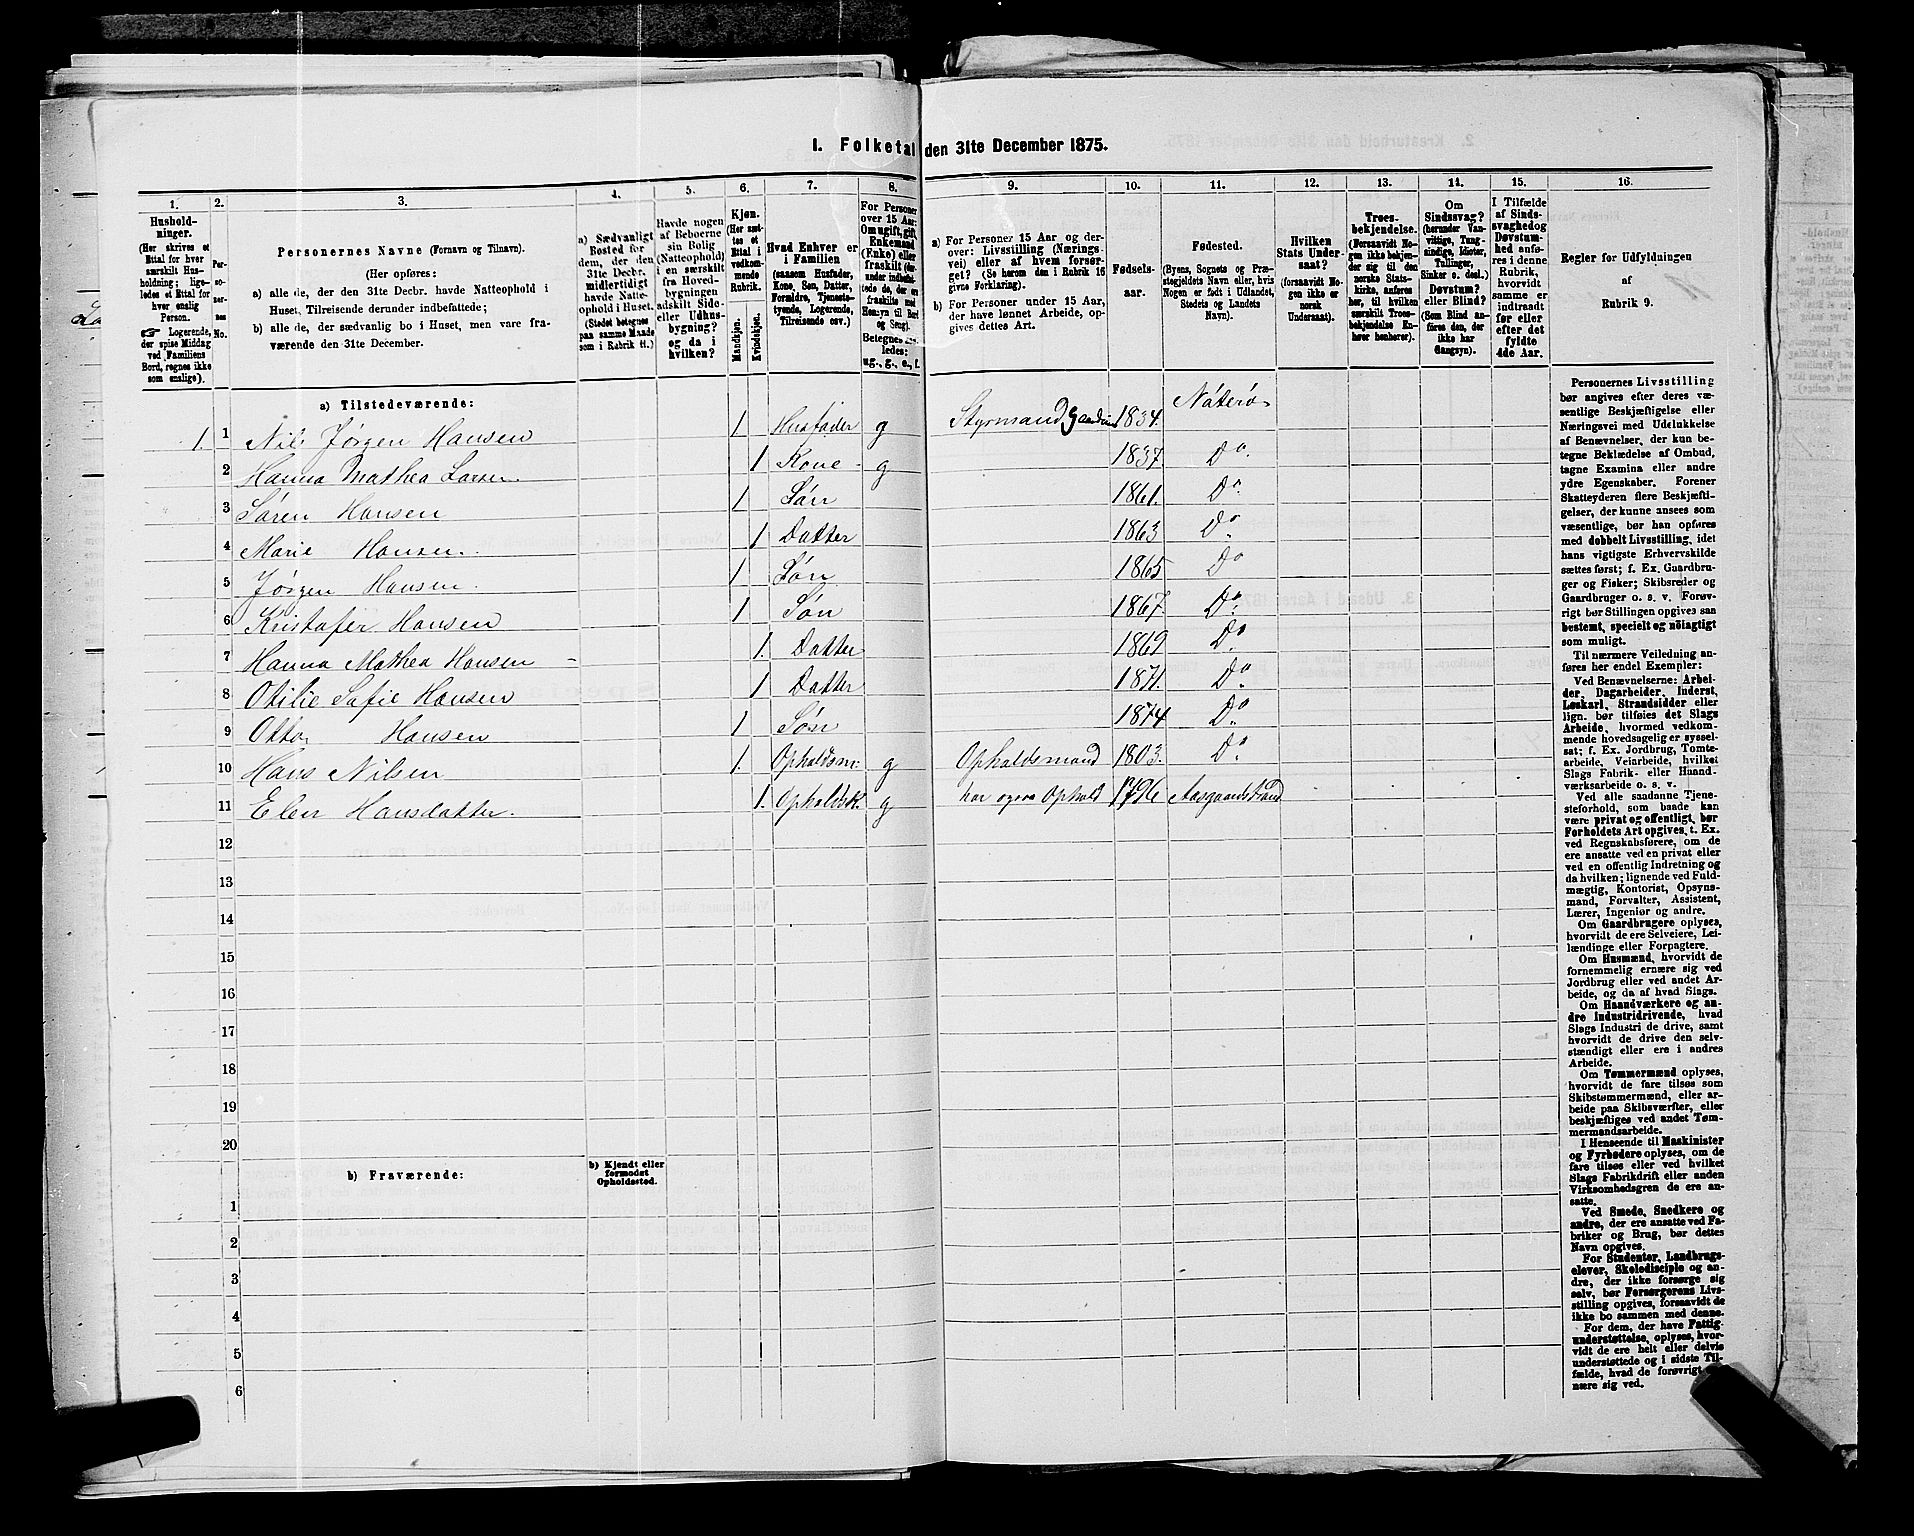 I. Folketal den 31te December 1875.
1. 2. 3. 4. 5. 6. 7. 8. 9. 10. 11. 12. 13. 14. 15. 16.
Hushold-
ninger.
(Her skrives et
Ettal for hver
særskilt Hus-
holdning; lige-
ledes et Ettal for
hver enslig
Person.
☞ Logerende,
der spise Middag
ved Familiens
Bord, regnes ikke
som enslige).
Per-
so-
ner-
nes
No.
Personernes Navne (Fornavn og Tilnavn).
(Her opføres:
a) alle de, der den 31te Decbr. havde Natteophold i
Huset, Tilreisende derunder indbefattede;
b) alle de, der sædvanlig bo i Huset, men vare fra-
værende den 31te December.
a) Sædvanligt
Bosted for
dem, der den
31te Decbr.
midlertidigt
havde Natte-
ophold i Huset.
(Stedet betegnes
paa samme Maade
som i Rubrik 11.)
Havde nogen
af Beboerne
sin Bolig
(Natteophold)
i en særskilt
fra Hoved-
bygningen
adskilt Side-
eller Udhus-
bygning?
og da i
hvilken?
Kjøn.
(Her sæt-
tes et
Ettal i
vedkom-
mende
Rubrik.
Mandkjøn.
Kvindekjøn.
Hvad Enhver er
i Familien
(saasom Husfader,
Kone, Søn, Datter,
Forældre, Tjeneste-
tyende, Logerende,
Tilreisende osv.)
For Personer
over 15 Aar:
Om ugift, gift,
Enkemand
(Enke) eller
fraskilt
Betegnes saa-
ledes:
ug., g., e., f.
a) For Personer 15 Aar og der-
over: Livsstilling (Nærings-
vei) eller af hvem forsør-
get? (Se herom den i Rubrik 16
givne Forklaring).
b) For Personer under 15 Aar,
der have lønnet Arbeide, op-
gives dettes Art.
Fødsels-
aar.
Fødested.
(Byens, Sognets og Præ-
stegjeldets Navn eller, hvis
Nogen er født i Udlandet,
Stedets og Landets
Navn).
Hvilken
Stats Under-
saat?
(forsaavidt No-
gen ikke er
norsk
Undersaat).
Troes-
bekjendelse.
(Forsaavidt No-
gen ikke bekjen-
der sig til den
norske Stats-
kirke, anføres
her, til hvilken
særskilt Troes-
bekjendelse En-
hver henhører).
Om
Sindssvag?
(herunder Van-
vittige, Tung-
sindige, Idioter,
Tullinger,
Sinker o. desl.)
Døvstum?
eller Blind?
(Som Blind an-
føres den, der
ikke har
Gangsyn).
I Tilfælde
af Sinds-
svaghed og
Døvstum-
hed anfø-
res i denne
Rubrik,
hvorvidt
samme er
indtraadt
før eller
efter det
fyldte
4de Aar.
Regler for Udfyldningen
af
Rubrik 9.
a) Tilstedeværende:
1. 1 Nils Jørgen Hansen 1 Husfader g Styrmand 1834. Nöterö
2 Hanna Mathea Larsen. 1 Kone. g 1837 Do.
3 Søren Hansen 1 Søn 1861. Do.
4 Marie Hansen. 1 Datter 1863 Do.
5 Jørgen Hansen. 1 Søn 1865 Do
6 Kristofer Hansen 1 Søn 1867. Do.
7 Hanna Mathea Hansen 1. Datter 1869 Do.
8 Otilie Sofie Hansen 1 Datter 1871. Do.
9 Otto Hansen 1 Søn 1874 Do.
10 Hans Nilsen 1. Opholdsm. g Opholdsmand 1803. Do.
11 Elen Hansdatter. 1. Opholdsk. g har ogsaa Ophold 1796 Aasgaardstrand
12
13
14
15
16
17
18
19
20
b) Fraværende:
b) Kjendt eller
formodet
Opholdssted.
1
2
3
4
5
6
Personernes Livsstilling
bør angives efter deres væ-
sentlige Beskjæftigelse eller
Næringsvei med Udelukkelse
af Benævnelser, der kun be-
tegne Beklædelse af Ombud,
tagne Examina eller andre
ydre Egenskaber. Forener
Skatteyderen flere Beskjæfti-
gelser, der kunne ansees som
væsentlige, bør han opføres
med dobbelt Livsstilling, idet
hans vigtigste Erhvervskilde
sættes først; f. Ex. Gaardbru-
ger og Fisker; Skibsreder og
Gaardbruger o. s. v. Forøv-
rigt bør Stillingen opgives saa
bestemt, specielt og nöiagtigt
som muligt.
Til nærmere Veiledning an-
føres her endel Exempler:
Ved Benævnelserne: Arbei-
der, Dagarbeider, Inderst,
Løskarl, Strandsidder eller
lign. bør tilføies det Slags
Arbeide, hvormed vedkom-
mende hovedsagelig er syssel-
sat; f. Ex. Jordbrug, Tomte-
arbeide, Veiarbeide, hvilket
Slags Fabrik- eller Haand-
værksarbeide o. s. v.
Ved alle saadanne Tjene-
steforhold, som baade kan
være privat og offentligt, bør
Forholdets Art opgives, t. Ex.
ved Regnskabsførere, om de
ere ansatte ved en privat eller
ved en offentlig Indretning og
da hvilken; lignende ved Fuld-
mægtig, Kontorist, Opsyns-
mand, Forvalter, Assistent,
Lærer, Ingeniør og andre.
Om Gaardbrugere oplyses,
hvorvidt de ere Selveiere, Lei-
lændinge eller Forpagtere.
Om Husmænd, hvorvidt de
fornemmelig ernære sig ved
Jordbrug eller ved andet Ar-
beide, og da af hvad Slags.
Om Haandværkere og an-
dre Industridrivende, hvad
Slags Industri de drive, samt
hvorvidt de drive den selv-
stændigt eller ere i andres
Arbeide.
Om Tømmermænd oplyses,
hvorvidt de fare tilsøs som
Skibstømmermænd, eller ar-
beide paa Skibsværfter, eller
beskjæftiges ved andet Tøm-
mermandsarbeide.
I Henseende til Maskinister
og Fyrbødere oplyses, om de
fare tilsøs eller ved hvilket
Slags Fabrikdrift eller anden
Virksomhedsgren de ere an-
satte.
Ved Smede, Snedkere og
andre, der ere ansatte ved Fa-
briker og Brug, bør dettes
Navn opgives.
For Studenter, Landbrugs-
elever, Skoledisciple og an-
dre, der ikke forsørge sig
selv, bør Forsørgerens Livs-
stilling opgives, forsaavidt de
ikke bo sammen med denne.
For dem, der have Fattig-
understøttelse, oplyses, hvor-
vidt de ere helt eller delvis
understøttede og i sidste Til-
fælde, hvad de forøvrigt er-
nære sig ved.